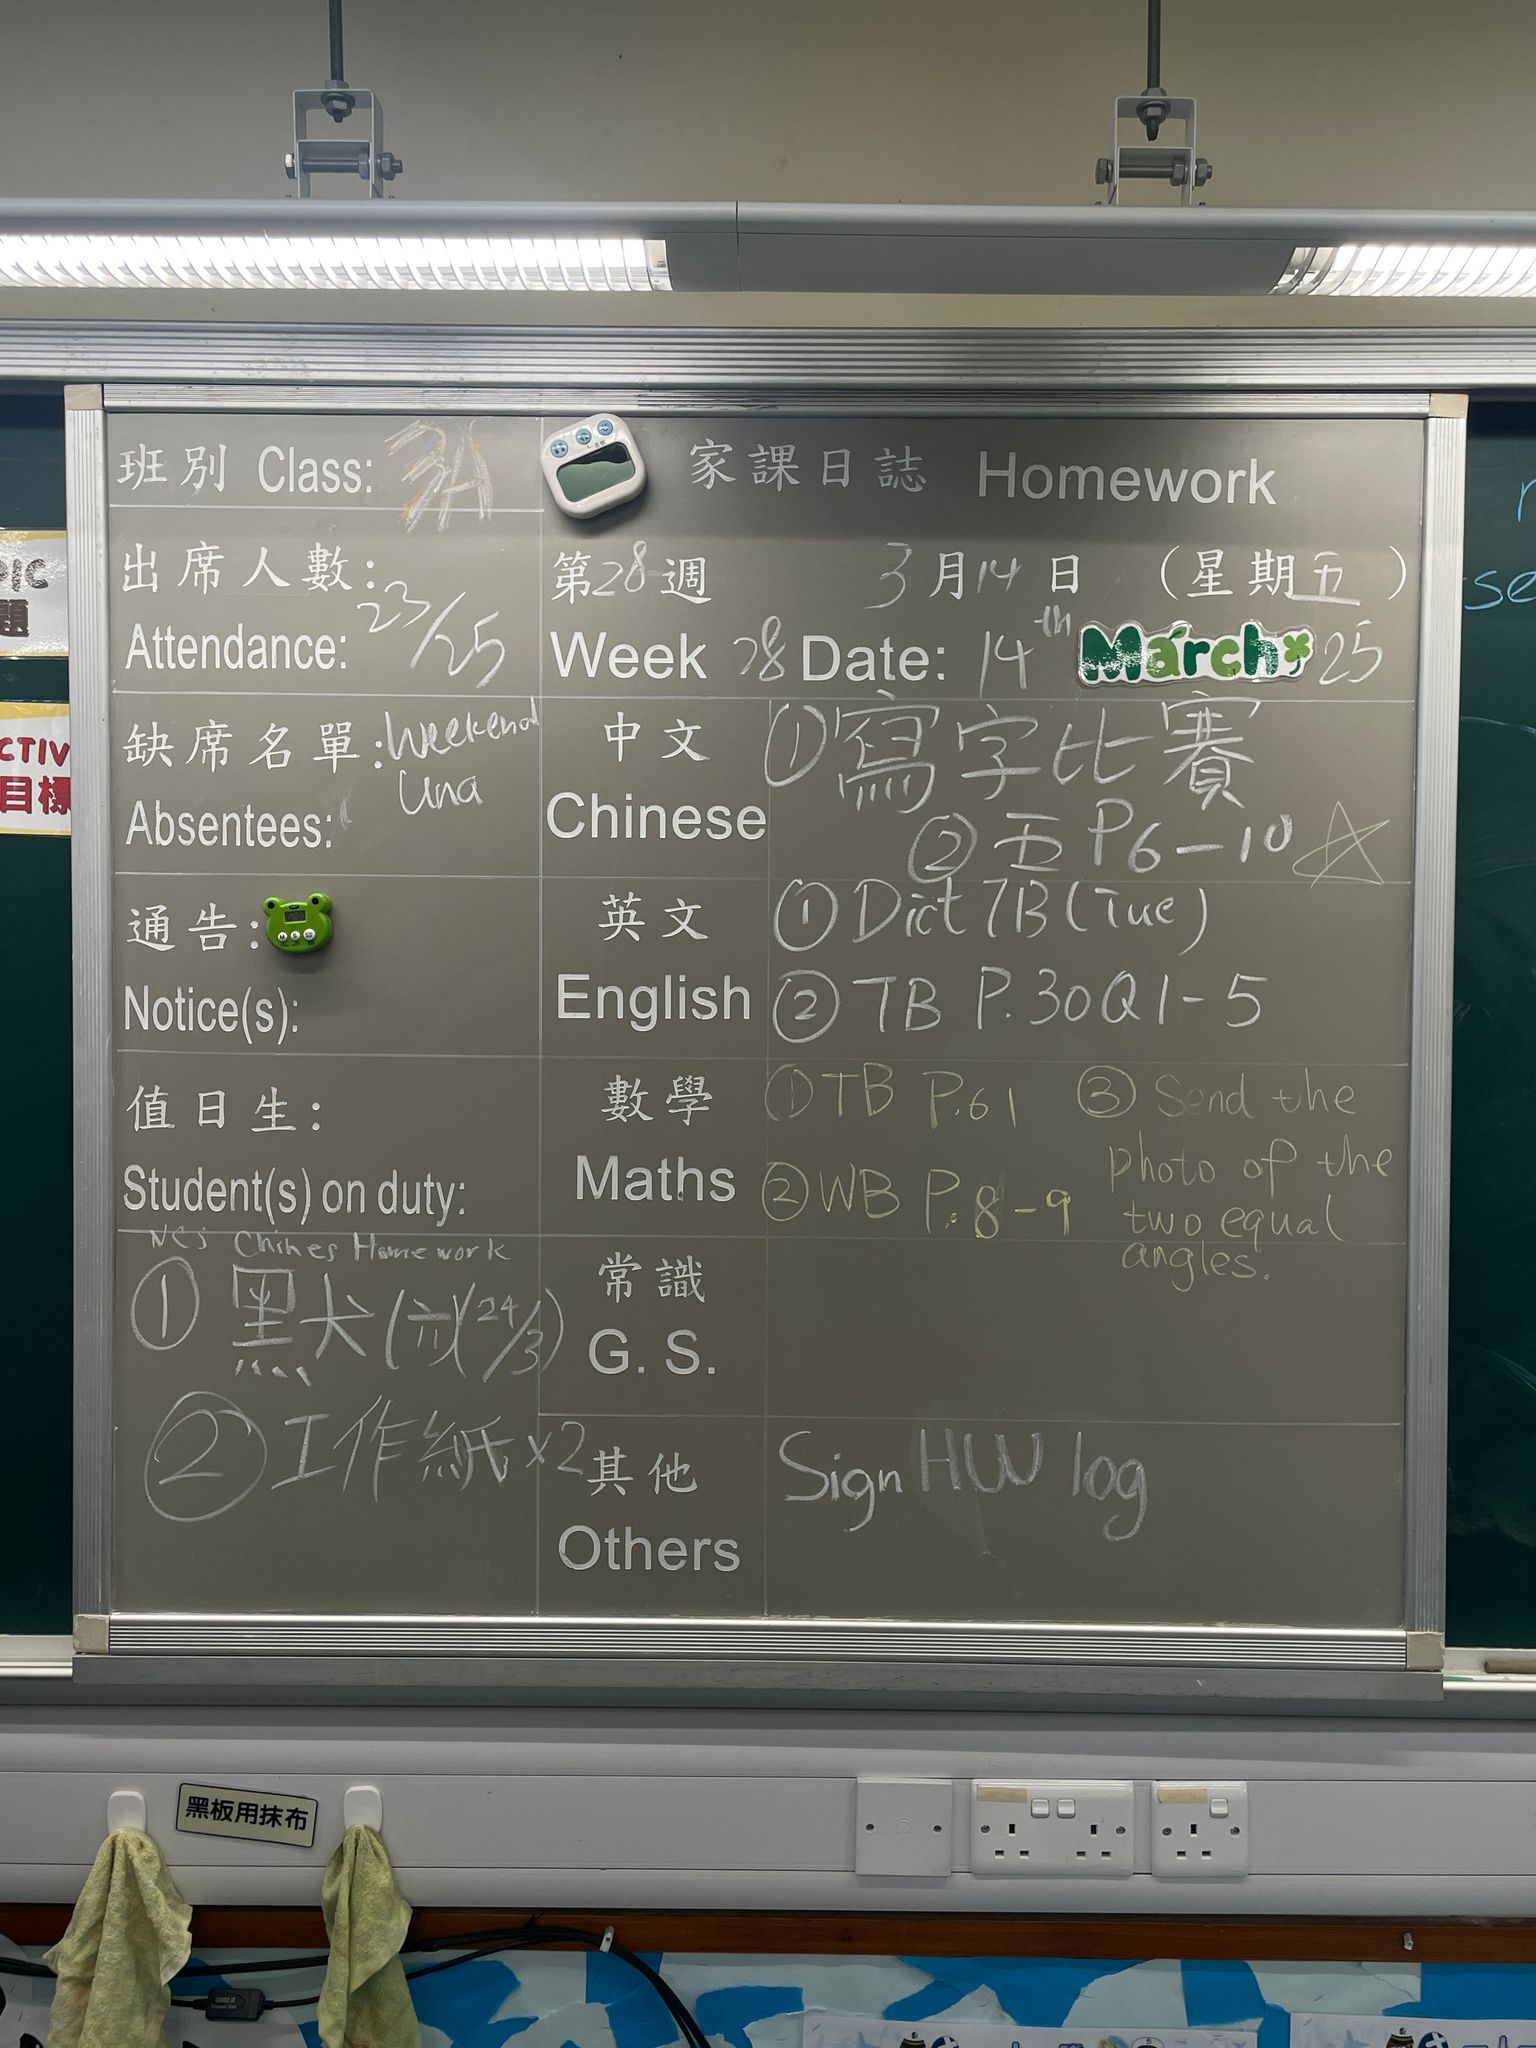 班別 Class: 3A
家課日誌 Homework
出席人數:
Attendance: 23/25
第28週 3月14日 (星期五)
Week 28 Date: 14th March 25
缺席名單: Weekend
Una
Absentees:
中文
Chinese
①寫字比賽
②五 P6-10
通告:
Notice(s):
英文
English
① Dict 7B (Tue)
② TB P.30 Q1-5
值日生:
Student(s) on duty:
數學
Maths
① TB P.61
② WB P.8-9
③ Send the
photo of the
two equal
angles.
NCS Chines Homework
① 黑犬(六)(24/3)
② 工作紙 x2
常識
G. S.
其他
Others
Sign HW log
PIC
題
CTIV
目標
黑板用抹布